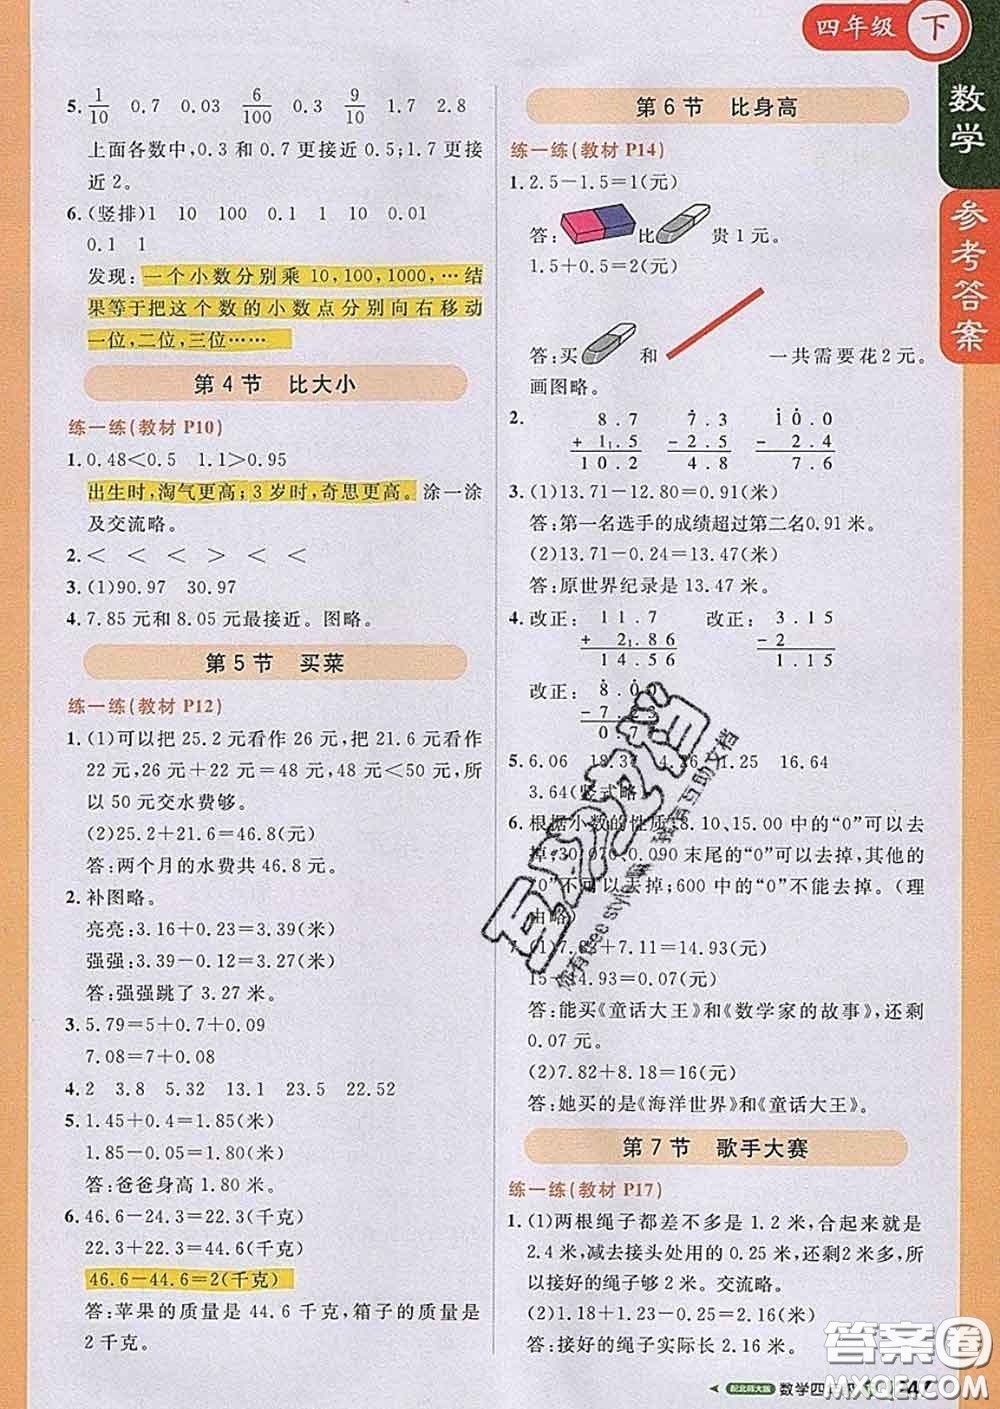 四年级 下
数学
参考答案
5. 1/10 0.7 0.03 6/100 0.3 9/10 1.7 2.8
上面各数中,0.3 和 0.7 更接近 0.5;1.7 更接
近 2。
6. (竖排)1 10 100 0.1 1 10 0.01
0.1 1
发现:一个小数分别乘 10,100,1000,…结
果等于把这个数的小数点分别向右移动
一位,二位,三位……
第 4 节 比大小
练一练(教材 P10)
1. 0.48<0.5 1.1>0.95
出生时,淘气更高;3 岁时,奇思更高。涂一涂
及交流略。
2. < < < > < <
3. (1)90.97 30.97
4. 7.85 元和 8.05 元最接近。图略。
第 5 节 买菜
练一练(教材 P12)
1. (1)可以把 25.2 元看作 26 元,把 21.6 元看作
22 元,26 元+22 元=48 元,48 元<50 元,所
以 50 元交水费够。
(2)25.2+21.6=46.8(元)
答:两个月的水费共 46.8 元。
2. 补图略。
亮亮:3.16+0.23=3.39(米)
强强:3.39-0.12=3.27(米)
答:强强跳了 3.27 米。
3. 5.79=5+0.7+0.09
7.08=7+0.08
4. 2 3.8 5.32 13.1 23.5 22.52
5. 1.45+0.4=1.85(米)
1.85-0.05=1.80(米)
答:爸爸身高 1.80 米。
6. 46.6-24.3=22.3(千克)
22.3+22.3=44.6(千克)
46.6-44.6=2(千克)
答:苹果的质量是 44.6 千克,箱子的质量是
2 千克。
第 6 节 比身高
练一练(教材 P14)
1. 2.5-1.5=1(元)
答: 比 贵 1 元。
1.5+0.5=2(元)
答:买 和 一共需要花 2 元。
画图略。
2. 8.7 7.3 10.0
+ 1.5 - 2.5 - 2.4
10.2 4.8 7.6
3. (1)13.71-12.80=0.91(米)
答:第一名选手的成绩超过第二名0.91 米。
(2)13.71-0.24=13.47(米)
答:原世界纪录是 13.47 米。
4. 改正: 11.7 改正: 3.15
+ 2.86 - 2
14.56 1.15
改正: 8.00
- 7.
0.7
5. 6.06 11.25 16.64
3.64(竖式略)
6. 根据小数的性质,8.10、15.00 中的“0”可以去
掉;30.070、0.090 末尾的“0”可以去掉,其他的
“0”不可以去掉;600 中的“0”不能去掉。(理
由略)
7.82+7.11=14.93(元)
15-14.93=0.07(元)
答:能买《童话大王》和《数学家的故事》,还剩
0.07 元。
(2)7.82+8.18=16(元)
答:她买的是《海洋世界》和《童话大王》。
第 7 节 歌手大赛
练一练(教材 P17)
1. (1)两根绳子都差不多是 1.2 米,合起来就是
2.4 米,减去接头处用的 0.25 米,还剩2 米多,所
以接好的绳子够 2 米。交流略。
(2)1.18+1.23-0.25=2.16(米)
答:接好的绳子实际长 2.16 米。
配北师大版 数学四
答案圈
MXQE.COM